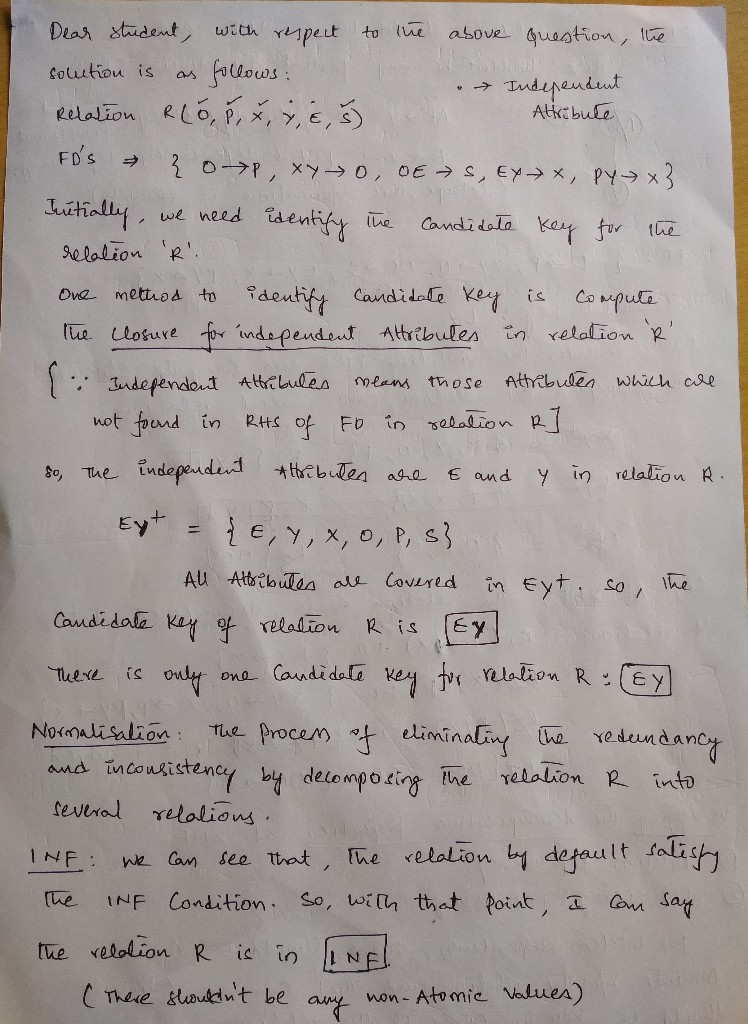 Dear student, with respect to the above question, the
solution is as follows:
• → Independent
Attribute
Relation R(O, P, X, Y, E, S)
FD's ⇒ { O→P, XY→O, OE→S, EY→X, PY→X}
Initially, we need identify the Candidate Key for the
relation 'R'.
One method to identify Candidate Key is Compute
The Closure for independent Attributes in relation 'R'
{∵ Independent Attributes means those Attributes which are
not found in RHS of FD in relation R]
so, The independent Attributes are E and Y in relation R.
EY+ = {E, Y, X, O, P, S}
All Attributes are Covered in EY+. so, the
Candidate Key of relation R is EY
There is only one Candidate Key for relation R : EY
Normalisation: The Process of eliminating the redundancy
and inconsistency by decomposing The relation R into
several relations.
1NF: we can see that, The relation by default satisfy
The 1NF Condition. So, with that point, I can say
the relation R is in 1NF.
(There shouldn't be any non-Atomic values)